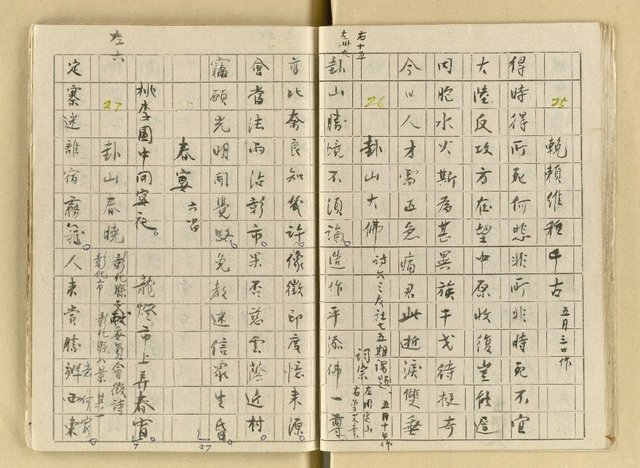 25 輓賴維種千古 五月三日作
得時得所死何悲非所非時死不宜
大陸反攻方在望中原收復豈能遲
同胞水火斯為甚異族干戈待挺奇
今日人才需正急痛君此逝淚雙垂
右十五
左卅九
26 卦山大佛 詩文之友社七五期課題、五月十日作
詞宗 左周定山
卦山勝境不須論造作平添佛一尊
直比奈良知幾許像徵印度憶來源
會當法雨沾彰市果否慈雲蔭近村
竊願光明開覺路免教迷信眾生昏
27
春宴 六唱
桃李園中開宴夜。龍燈市上弄春宵。
7
左六
27 卦山春曉 彰化縣文獻委員會徵詩
彰化市 彰化縣八景其一
定寨迷離宿霧籠。人來賞勝辨西東